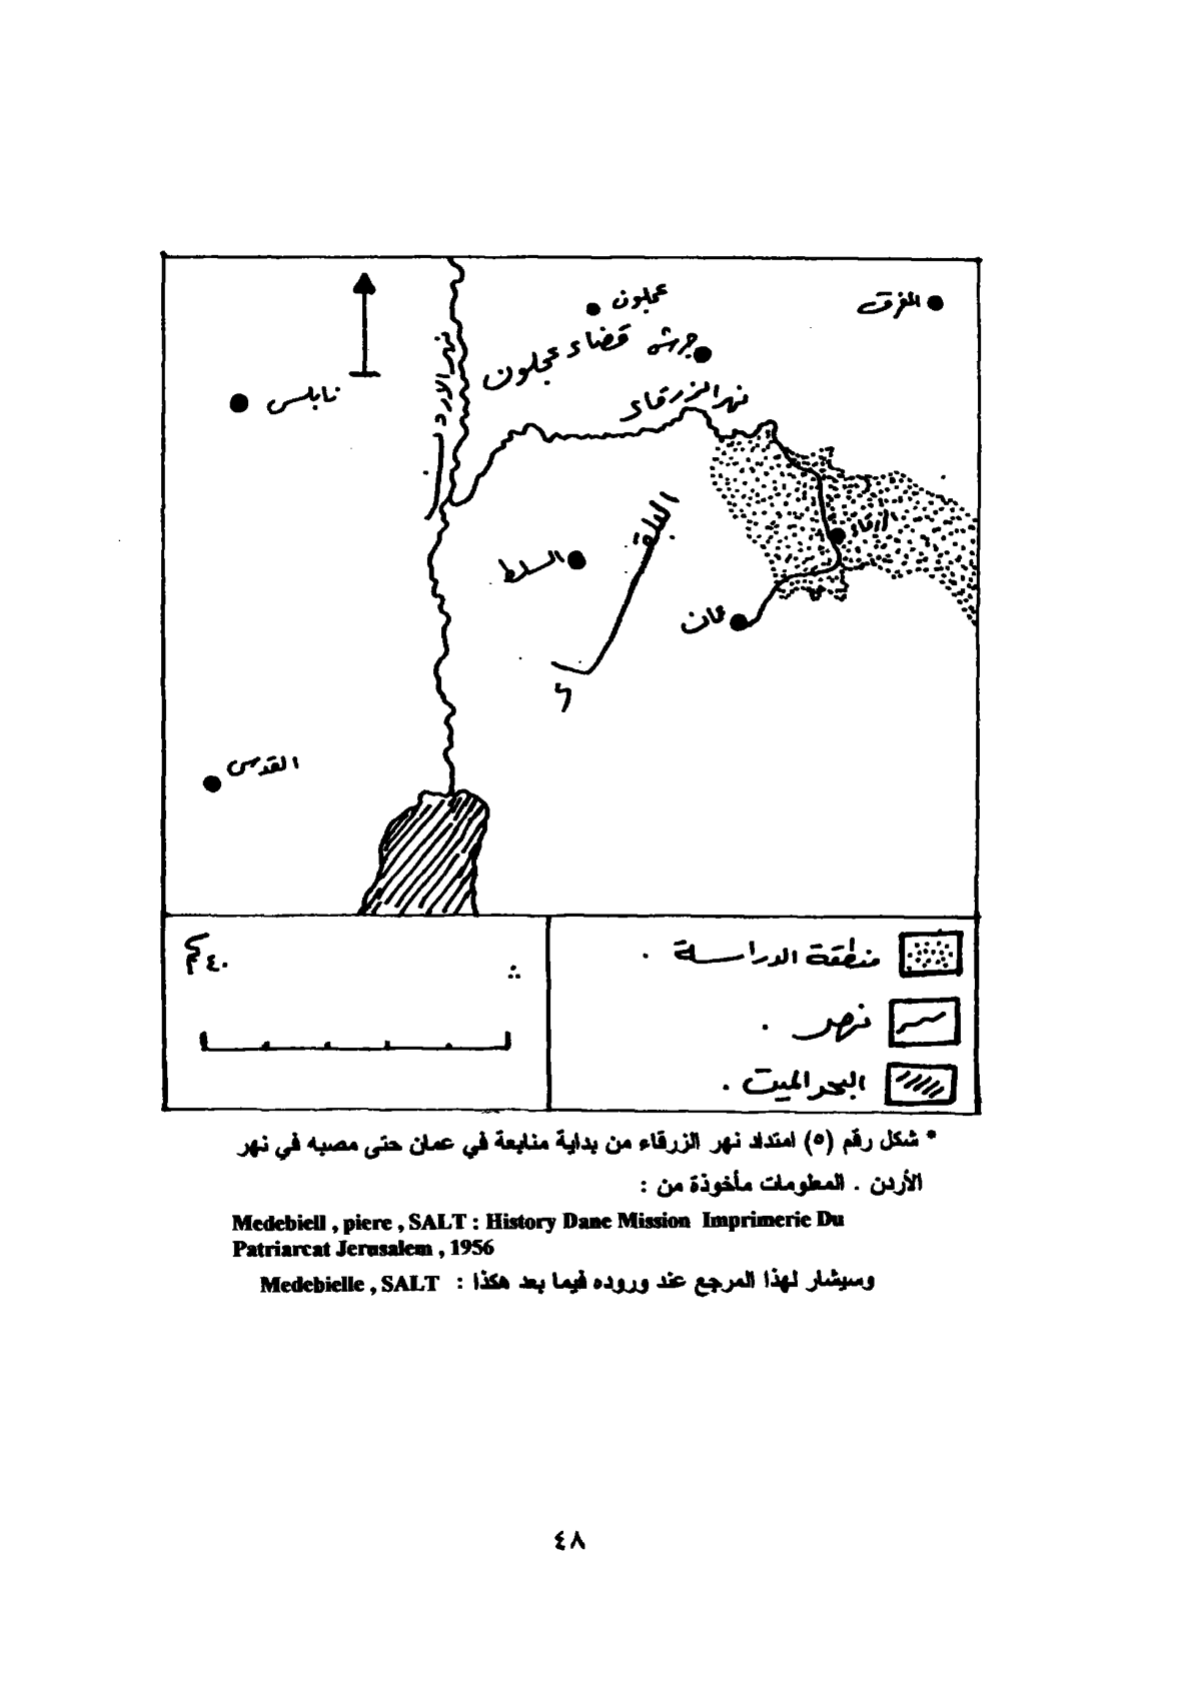 عجلون
المفرق
جرش
قضاء عجلون
نهر الاردن
نابلس
نهر الزرقاء
البلقاء
الزرقاء
السلط
عمان
القدس
منطقة الدراسة .
نهر .
البحر الميت .
٤٠ كم
* شكل رقم (٥) امتداد نهر الزرقاء من بداية منابعة في عمان حتى مصبه في نهر
الأردن . المعلومات مأخوذة من :
Medebiell , piere , SALT : History Dane Mission Imprimerie Du
Patriarcat Jerusalem , 1956
وسيشار لهذا المرجع عند وروده فيما بعد هكذا : Medebielle , SALT
٤٨